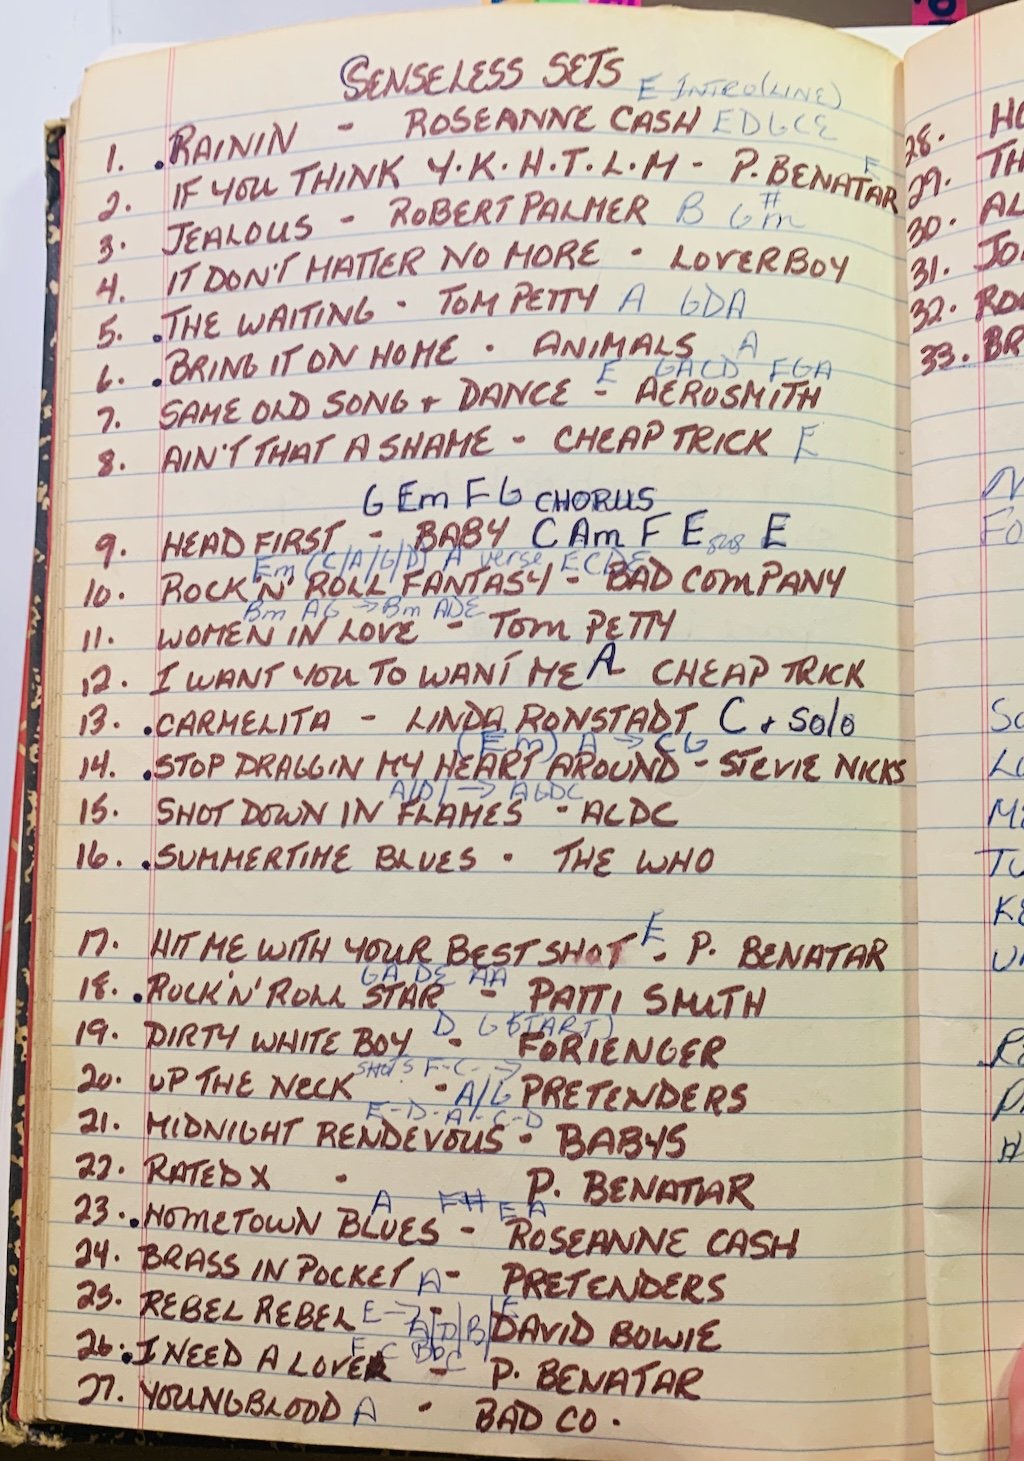 SENSELESS SETS
E INTRO (LINE)
1. .RAININ - ROSEANNE CASH E D G C E
2. IF YOU THINK Y.K.H.T.L.M - P. BENATAR E
3. JEALOUS - ROBERT PALMER B G#m
4. IT DON'T MATTER NO MORE - LOVERBOY
5. .THE WAITING - TOM PETTY A GDA
6. .BRING IT ON HOME - ANIMALS A
E GACD FGA
7. SAME OLD SONG + DANCE - AEROSMITH
8. AIN'T THAT A SHAME - CHEAP TRICK E
G Em F G CHORUS
9. HEAD FIRST - BABY C Am F E sus E
Em (C/A/G/D) A verse ECDE
10. ROCK N' ROLL FANTASY - BAD COMPANY
Bm AG → Bm ADE
11. WOMEN IN LOVE - TOM PETTY
12. I WANT YOU TO WANT ME A CHEAP TRICK
13. .CARMELITA - LINDA RONSTADT C + Solo
(Em) A → CG
14. .STOP DRAGGIN MY HEART AROUND - STEVIE NICKS
A/D/ → AGDC
15. SHOT DOWN IN FLAMES - ACDC
16. .SUMMERTIME BLUES - THE WHO
17. HIT ME WITH YOUR BEST SHOT E - P. BENATAR
GA DE AA
18. .ROCK'N'ROLL STAR - PATTI SMITH
D G (START)
19. DIRTY WHITE BOY - FORIENGER
SHOTS F-C- →
20. UP THE NECK - A/G PRETENDERS
E-D-A-C-D
21. MIDNIGHT RENDEVOUS - BABYS
22. RATED X - P. BENATAR
A F# E A
23. .HOMETOWN BLUES - ROSEANNE CASH
24. BRASS IN POCKET A - PRETENDERS
25. REBEL REBEL E → A/D/B/E DAVID BOWIE
F C Bb C
26. .I NEED A LOVER - P. BENATAR
27. YOUNGBLOOD A - BAD CO.
28. HO
29. TH
30. AL
31. JO
32. RO
33. BR